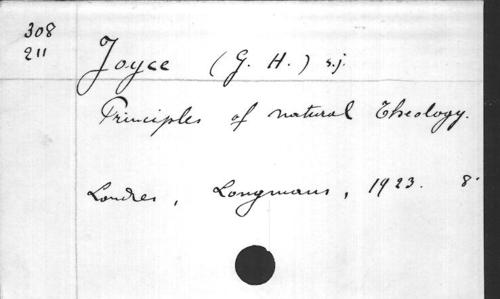 308
211
Joyce (G. H.) s.j.
Principles of natural Theology.
Londres, Longmans, 1923. 8°